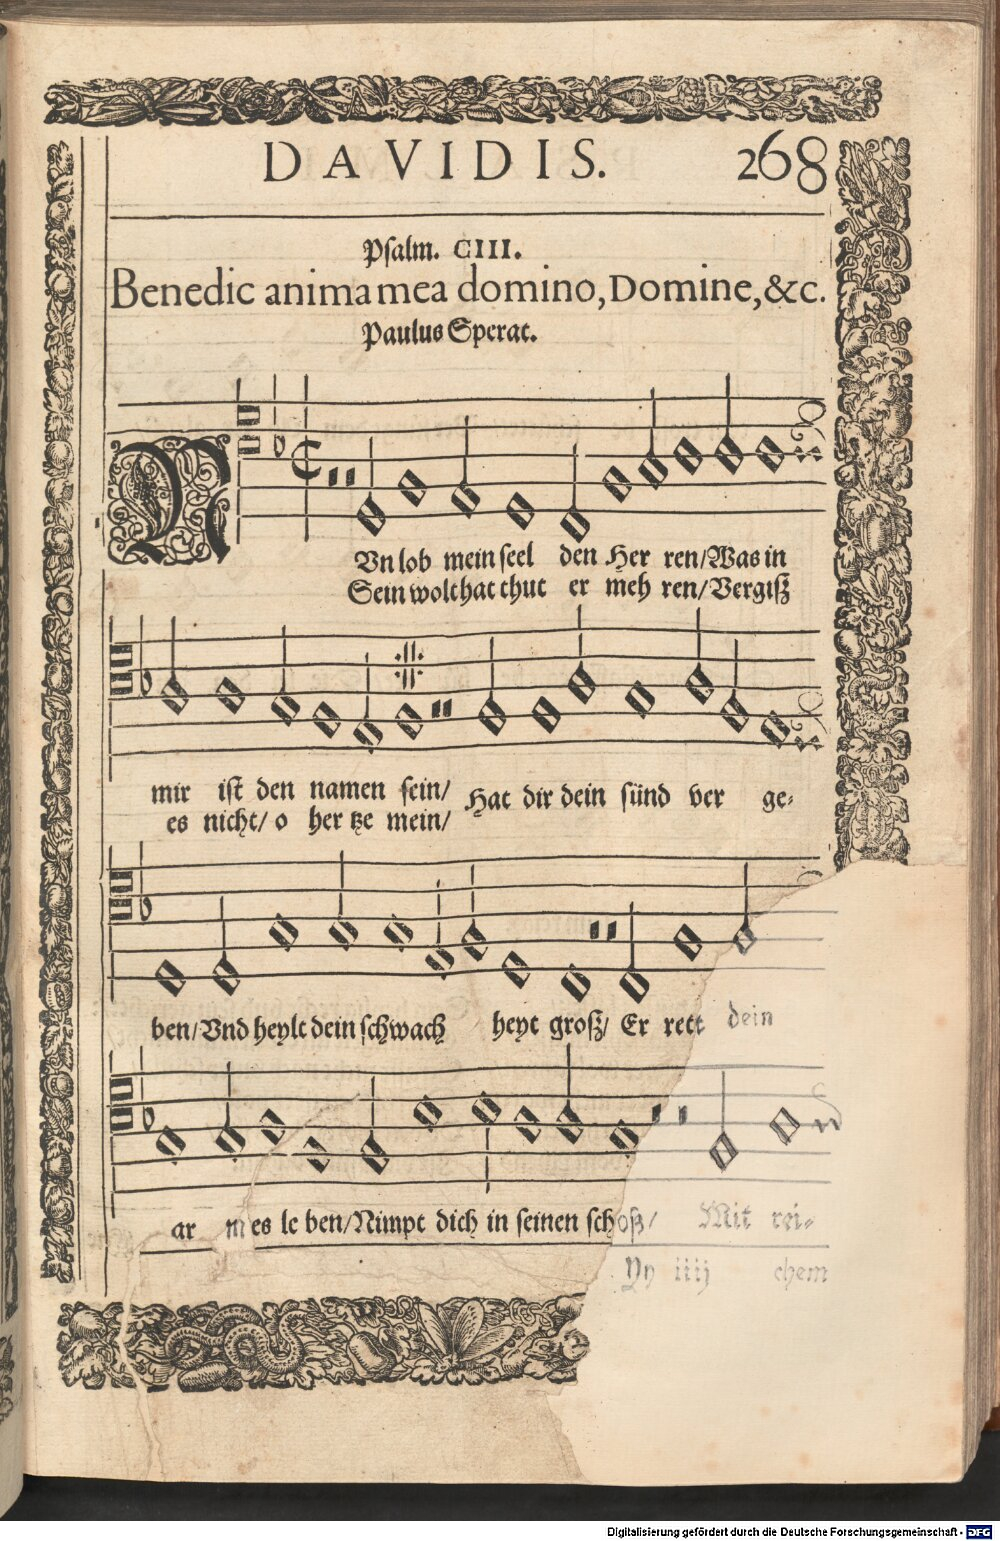 DAVIDIS. 268
Psalm. CIII.
Benedic anima mea domino, Domine, &c.
Paulus Sperat.
NVn lob mein seel den Her ren/Was in
Sein wolthat thut er meh ren/Vergiß
mir ist den namen sein/ Hat dir dein sünd ver ge-
es nicht/ o her tze mein/
ben/Vnd heylt dein schwach heyt groß/ Er rett dein
ar mes le ben/Nimpt dich in seinen schoß/ Mit rei-
Yy iiij chem
Digitalisierung gefördert durch die Deutsche Forschungsgemeinschaft - DFG